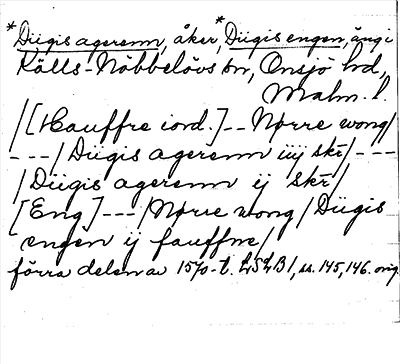 *Diigis agerenn, åker, *Diigis engen, äng i
Källs-Nöbbelövs sn, Onsjö hd,
Malm. l.
/[Hauffre iord.]-- Nørre wong/
---/Diigis agerenn iiij skr/---
/Diigis agerenn ij skr/
[Eng]---/Nørre wong/Diigis
engen ij fauffne/
förra delen av 1570-t. LSLB1, ss. 145, 146. orig.